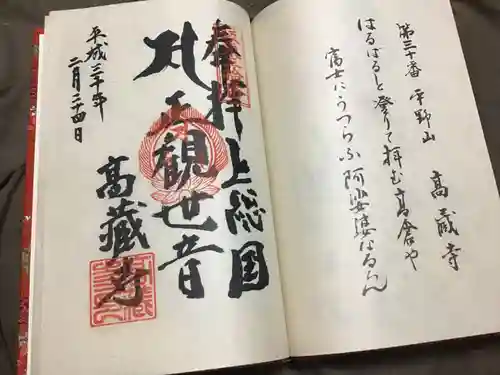 第三十番 平野山 高蔵寺
はるばると登りて拝む高倉や
富士にうつらふ阿娑婆なるらん
奉拝 上総国
正観世音
高蔵寺
平成三十年
二月二十四日